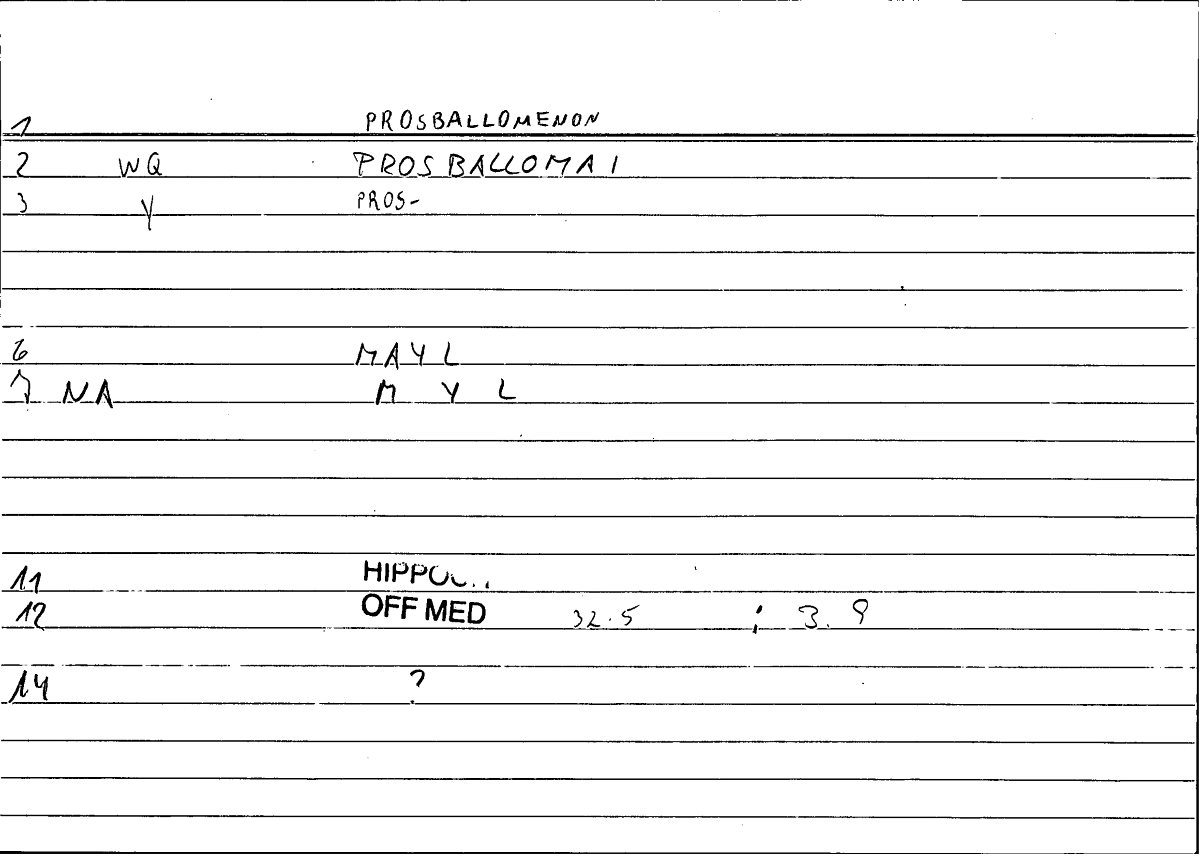 1 PROSBALLOMENON
2 WQ PROSBALLOMAI
3 Y PROS-
6 MAYL
7 NA M Y L
11
12 OFF MED 32.5 ; 3.9
14 ?